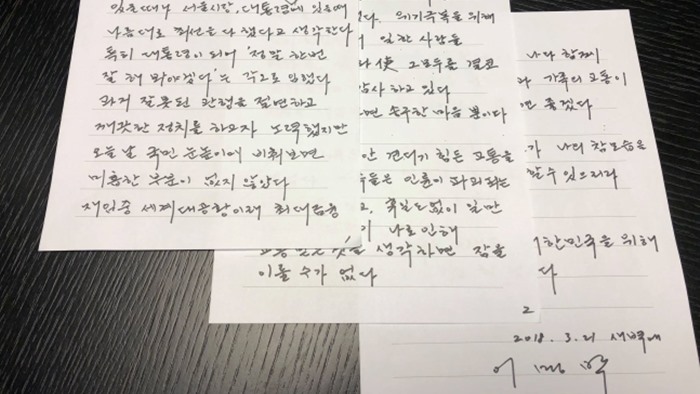 있을때나 서울시장, 대통령에 있을때
나름대로 최선을 다 했다고 생각한다
특히 대통령이 되어 '정말 한번
잘 해 봐야겠다'는 각오로 임했다
과거 잘못된 관행을 절연하고
깨끗한 정치를 하고자 노력했지만
오늘날 국민 눈높이에 비춰보면
미흡한 부분이 없지 않았다
재임중 세계대공황이래 최대금융
다. 위기극복을 위해
일한 사람들
使 그 모두를 결코
감사 하고 있다
면 송구한 마음 뿐이다
안 견디기 힘든 고통을
들은 인륜이 파괴되는
고. 휴일도 없이 일만
나로 인해
생각하면 잠을
이룰 수가 없다
나다 참찌
가족의 고통이
면 좋겠다
가 나의 참모습을
할 수 있으리라
대한민국을 위해
다
2
2018. 3. 21 새벽에
이명박